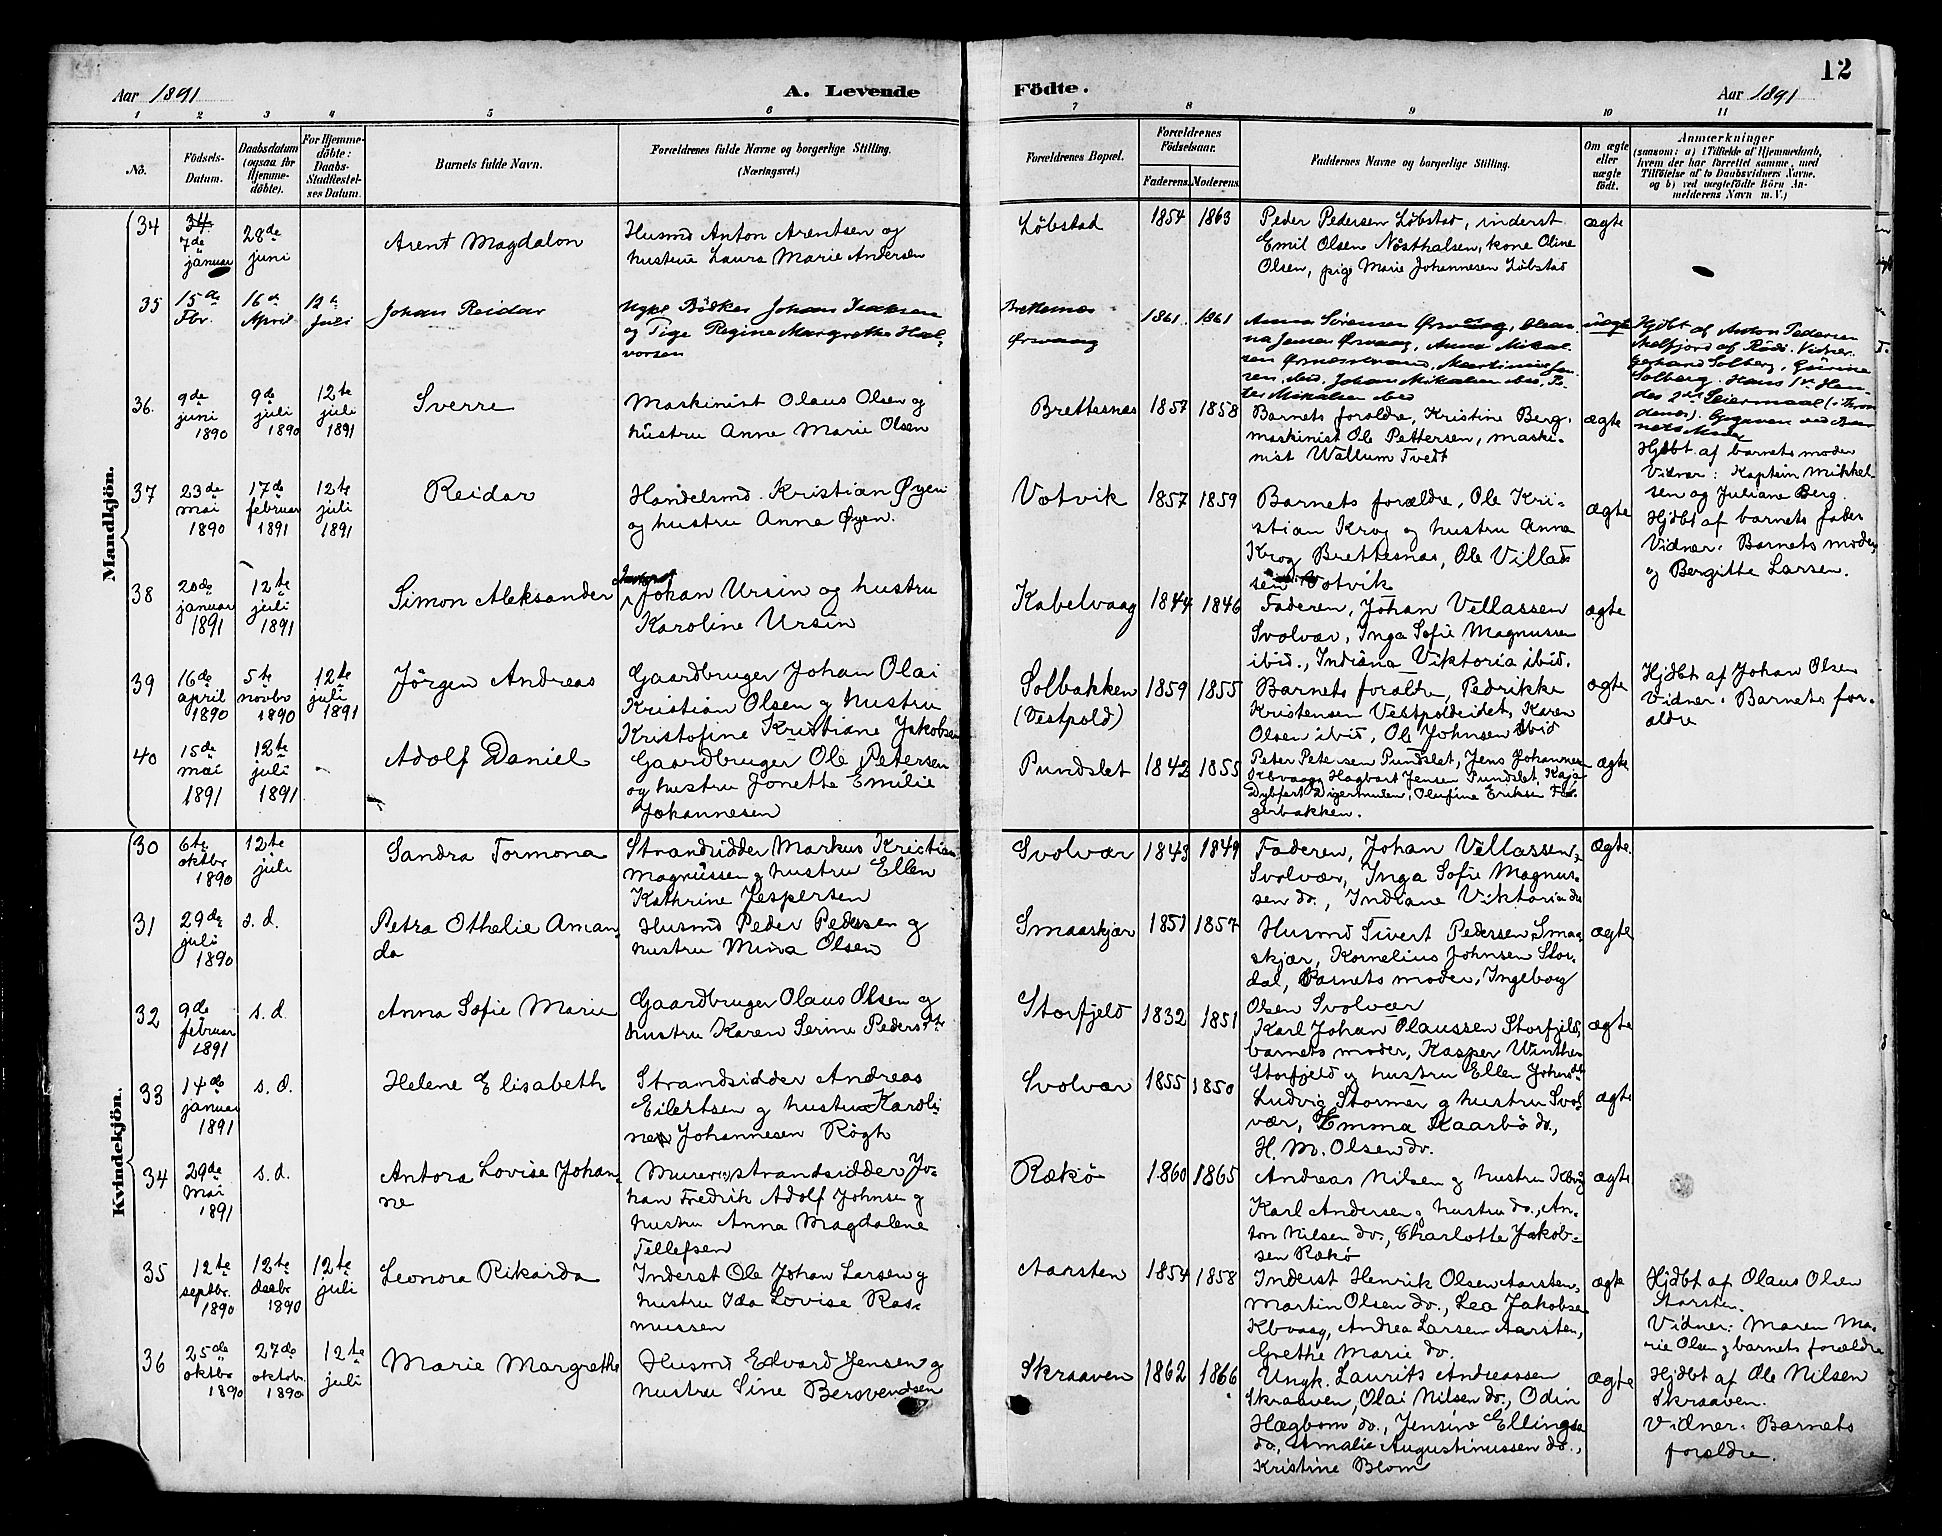 12
Aar 1891
A. Levende
Födte.
Aar 1891
1 2 3 4 5 6 7 8 9 10 11
No.
Födsels-
Datum.
Daabsdatum
(ogsaa for
Hjemme-
döbte).
For Hjemme-
döbte:
Daabs-
Stadfæstel-
ses Datum.
Barnets fulde Navn.
Forældrenes fulde Navne og borgerlige Stilling.
(Næringsvei.)
Forældrenes Bopæl.
Forældrenes
Födselsaar.
Faderens. Moderens.
Faddernes Navne og borgerlige Stilling.
Om ægte
eller
uægte
født.
Anmærkninger
(saasom: a) i Tilfælde af Hjemmedaab,
hvem der har forrettet samme, med
Tilföielse af to Daabsvidners Navne,
og b) ved uægtefödte Börn An-
melderens Navn m. V.)
Mandkjön.
34
7de
januar
28de
juni
Arent Magdalon
Husmd Anton Arentsen og
hustru Laura Marie Andersen
Löbstad
1854 1863
Peder Pedersen Löbstad, inderst
Emil Olsen Nösthalsen, kone Oline
Olsen, pige Marie Johannesen Löbstad
ægte
35
15de
Fbr.
16de
April
12te
Juli
Johan Reidar
Ugkl Bödker Johan Isaksen
og Pige Regine Margrethe Hal-
vorsen
Brettesnæs
Ørsvaag
1861. 1861
uægte
Hjdbt af Anton Pedersen
36.
9de
juni
1890
9de
juli
1890
12te
juli
1891
Sverre
Maskinist Olaus Olsen og
hustru Anne Marie Olsen
Brettesnæs
1857 1858
Barnets forældre, Kristine Berg,
maskinist Ole Pettersen, maski-
nist Wallum Tvedt
ægte
Hjdbt. af barnets moder
Vidner: Kaptein Mikkel-
sen og Juliane Berg.
37
23de
mai
1890
17de
februar
1891
12te
juli
1891
Reidar
Handelsmd. Kristian Øyen
og hustru Anna Øyen.
Votvik
1857 1859
Barnets forældre, Ole Kri-
stian Krog og hustru Anna
Krog Brettesnæs, Ole Villad-
sen Votvik
ægte
Hjdbt af barnets fader
Vidner: Barnets moder
og Bergitte Larsen.
38
20de
januar
1891
12te
juli
1891
Simon Aleksander
Johan Ursin og hustru
Karoline Ursin
Kabelvaag
1844 1846
Faderen, Johan Vellassen
Svolvær, Inga Sofie Magnussen
ibid., Indiana Viktoria ibid.
ægte
39
16de
april
1890
5te
novbr
1890
12te
juli
1891
Jörgen Andreas
Gaardbruger Johan Olai
Kristian Olsen og hustru
Kristofine Kristiane Jakobsen
Solbakken
(Vestpold)
1859 1855
Barnets forældre, Pedrikke
Kristensen Vestpoldeidet, Karen
Olsen ibid, Ole Johnsen ibid
ægte
Hjdbt af Johan Olsen
Vidner: Barnets for-
ældre
40
15de
mai
1891
12te
juli
1891
Adolf Daniel
Gaardbruger Ole Petersen
og hustru Jonette Emilie
Johannesen
Pundslet
1842 1855
Peter Petersen Pundslet, Jens Johannesen
Hagbart Jensen Pundslet, Kaja
Digermulen, Olufine Eriksen Fag-
gerbakken.
ægte
Kvindekjön.
30
6te
oktbr
1890
12te
juli
Sandra Tormona
Strandsidder Markus Kristian
Magnussen og hustru Ellen
Kathrine Jespersen
Svolvær
1843 1849
Faderen, Johan Vellassen,
Svolvær, Inga Sofie Magnus-
sen do., Indiane Viktoria do
ægte.
31
29de
juli
1890
s. d.
Petra Othelie Aman-
da
Husmd Peder Pedersen og
hustru Mina Olsen
Smaaskjær
1851 1857
Husmd Sivert Pedersen Smaa-
skjær, Kornelius Johnsen Stor-
dal, Barnets moder, Ingeborg
Olsen Svolvær
ægte
32
9de
februar
1891
s. d.
Anna Sofie Marie
Gaardbruger Olaus Olsen og
hustru Karen Serine Pedersdtr
Storfjeld
1832 1851
Karl Johan Olaussen Storfjeld,
barnets moder, Kasper Winther
Storfjeld og hustru Ellen Johnsdtr
ægte
33
14de
januar
1891
s. d.
Helene Elisabeth
Strandsidder Andreas
Eilertsen og hustru Karoli-
ne Johannesen Røgh
Svolvær
1855 1850
Ludvig Stormer og hustru Svol-
vær, Emma Kaarbö do.,
H. M. Olsen do.
ægte
34
29de
Mai
1891
s. d.
Antora Lovise Johan-
ne
Murer, strandsidder Jo-
han Fredrik Adolf Johnsen og
hustru Anna Magdalene
Tellefsen
Rækö
1860 1865
Andreas Nilsen og hustru
Karl Andersen og hustru do., An-
ton Nilsen do., Charlotte Jakob-
sen Rækö
ægte
35
12te
septbr.
1890
12te
decbr
1890
12te
juli
Leonora Rikarda
Inderst Ole Johan Larsen og
hustru Ida Lovise Ras-
mussen
Aarsten
1854 1858
Inderst Henrik Olsen Aarsten,
Martin Olsen do., Lea Jakobsen
Andrea Larsen Aarsten,
Grethe Marie do.
ægte
Hjdbt af Olaus Olsen
Aarsten.
Vidner: Maren Ma-
rie Olsen og barnets forældre
36
25de
oktbr
1890
27de
oktobr.
1890
12te
juli
Marie Margrethe
Husmd Edvard Jensen og
hustru Sine Bersvendsen
Skraaven
1862 1866
Ungk. Laurits Andreassen
Skraaven, Olai Nilsen do., Odin
Hægbom do., Jensine Ellingsen
do., Amalie Augustinussen do.,
Kristine Blom
ægte
Hjdbt af Ole Nilsen
Skraaven.
Vidner: Barnets
forældre.